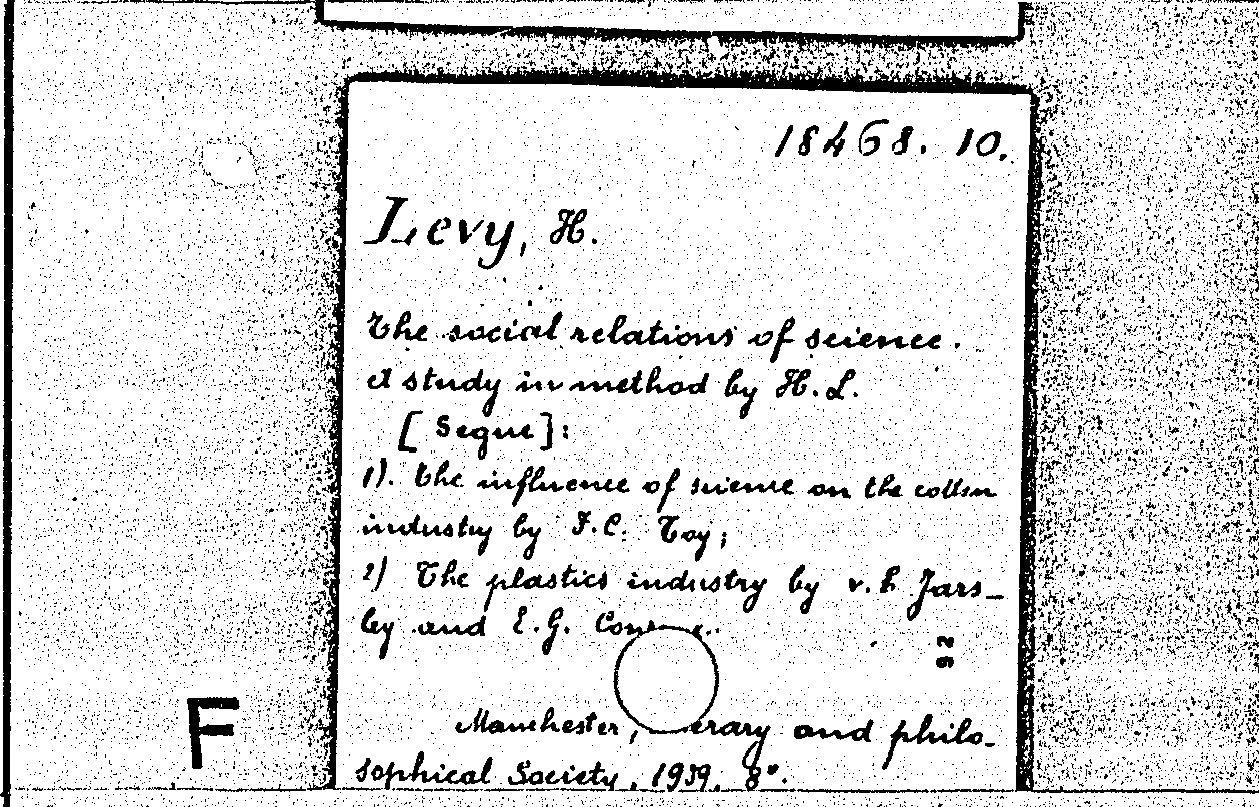 18468. 10.
Levy, H.
The social relations of science.
A study in method by H. L.
[Segue]:
1). The influence of science on the cotton
industry by F.C. Toy;
2) The plastics industry by v. h Jars-
by and E.G.
92
Manchester, erary and philo-
sophical Society, 1939. 8°.
F